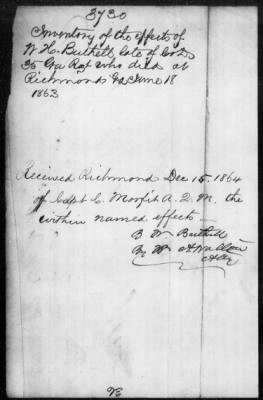 3730
Inventory of the effects of
W. H. Buthell late of Co D
35 Ga Regt who died at
Richmond Va June 18
1863
Received Richmond Dec 15. 1864
of Capt C. Morfit A. Q. M. the
within named effects
B W Buthell
By W A Walton
Atty